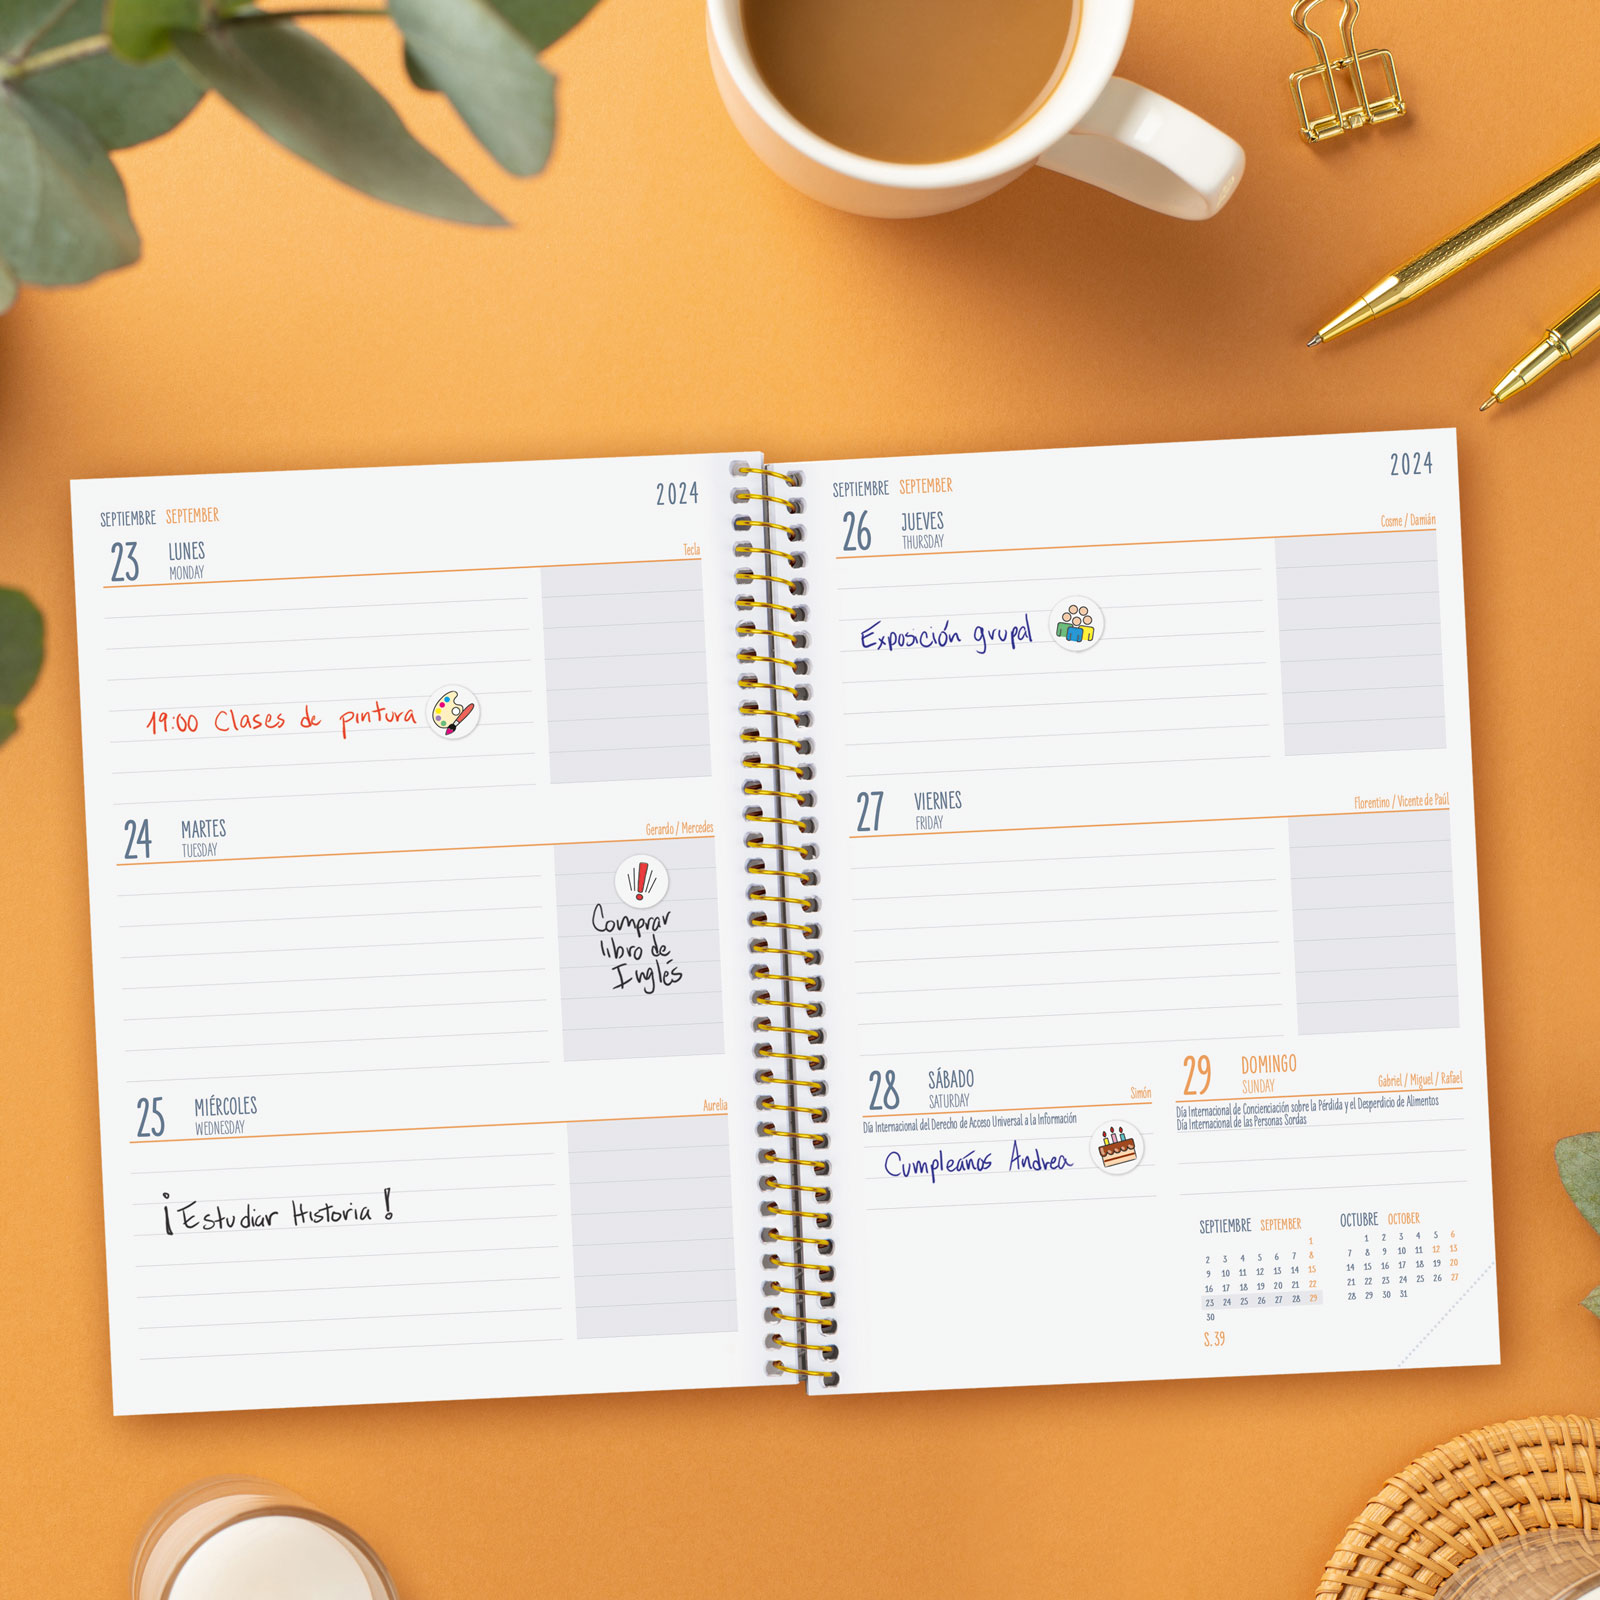 2024
SEPTIEMBRE SEPTEMBER
23 LUNES
MONDAY
Tecla
19:00 Clases de pintura
24 MARTES
TUESDAY
Gerardo / Mercedes
Comprar
libro de
Inglés
25 MIÉRCOLES
WEDNESDAY
Aurelia
¡Estudiar Historia!
2024
SEPTIEMBRE SEPTEMBER
26 JUEVES
THURSDAY
Cosme / Damián
Exposición grupal
27 VIERNES
FRIDAY
Florentino / Vicente de Paúl
28 SÁBADO
SATURDAY
Simón
Día Internacional del Derecho de Acceso Universal a la Información
Cumpleaños Andrea
29 DOMINGO
SUNDAY
Gabriel / Miguel / Rafael
Día Internacional de Concienciación sobre la Pérdida y el Desperdicio de Alimentos
Día Internacional de las Personas Sordas
SEPTIEMBRE SEPTEMBER
1
2 3 4 5 6 7 8
9 10 11 12 13 14 15
16 17 18 19 20 21 22
23 24 25 26 27 28 29
30
S. 39
OCTUBRE OCTOBER
1 2 3 4 5 6
7 8 9 10 11 12 13
14 15 16 17 18 19 20
21 22 23 24 25 26 27
28 29 30 31